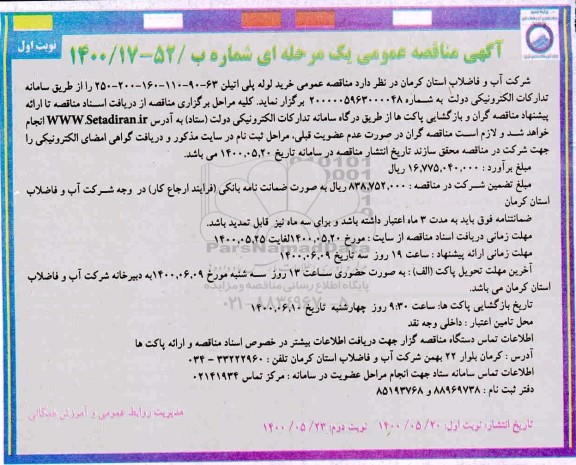 نوبت اول
آگهی مناقصه عمومی یک مرحله ای شماره ب /۵۲-۱۴۰۰/۱۷
شرکت آب و فاضلاب استان کرمان در نظر دارد مناقصه عمومی خرید لوله پلی اتیلن ۶۳-۹۰-۱۱۰-۱۶۰-۲۰۰-۲۵۰ را از طریق سامانه
تدارکات الکترونیکی دولت به شماره ۲۰۰۰۰۰۵۹۶۳۰۰۰۰۴۸ برگزار نماید. کلیه مراحل برگزاری مناقصه از دریافت اسناد مناقصه تا ارائه
پیشنهاد مناقصه گران و بازگشایی پاکت ها از طریق درگاه سامانه تدارکات الکترونیکی دولت (ستاد) به آدرس WWW.Setadiran.ir انجام
خواهد شد و لازم است مناقصه گران در صورت عدم عضویت قبلی، مراحل ثبت نام در سایت مذکور و دریافت گواهی امضای الکترونیکی را
جهت شرکت در مناقصه محقق سازند تاریخ انتشار مناقصه در سامانه تاریخ ۱۴۰۰,۰۵,۲۰ می باشد.
مبلغ برآورد : ۱۶,۷۷۵,۰۴۰,۰۰۰ ریال
مبلغ تضمین شرکت در مناقصه : ۸۳۸,۷۵۲,۰۰۰ ریال به صورت ضمانت نامه بانکی (فرایند ارجاع کار) در وجه شرکت آب و فاضلاب
استان کرمان
ضمانتنامه فوق باید به مدت ۳ ماه اعتبار داشته باشد و برای سه ماه نیز قابل تمدید باشد.
مهلت زمانی دریافت اسناد مناقصه از سایت : مورخ ۱۴۰۰,۰۵,۲۰ لغایت ۱۴۰۰,۰۵,۲۵
مهلت زمانی ارائه پیشنهاد : ساعت ۱۹ روز سه تاریخ ۱۴۰۰,۰۶,۰۹
آخرین مهلت تحویل پاکت (الف) : به صورت حضوری ساعت ۱۳ روز سه شنبه مورخ ۱۴۰۰,۰۶,۰۹ به دبیرخانه شرکت آب و فاضلاب
استان کرمان می باشد.
تاریخ بازگشایی پاکت ها: ساعت ۹:۳۰ روز چهارشنبه تاریخ ۱۴۰۰,۰۶,۱۰
محل تامین اعتبار : داخلی وجه نقد
اطلاعات تماس دستگاه مناقصه گزار جهت دریافت اطلاعات بیشتر در خصوص اسناد مناقصه و ارائه پاکت ها
آدرس : کرمان بلوار ۲۲ بهمن شرکت آب و فاضلاب استان کرمان تلفن : ۳۳۲۲۲۹۶۰ - ۰۳۴
اطلاعات تماس سامانه ستاد جهت انجام مراحل عضویت در سامانه : مرکز تماس ۰۲۱۴۱۹۳۴
دفتر ثبت نام : ۸۸۹۶۹۷۳۸ و ۸۵۱۹۳۷۶۸
مدیریت روابط عمومی و آموزش همگانی
تاریخ انتشار: نوبت اول: ۲۰/ ۰۵/ ۱۴۰۰ نوبت دوم: ۲۳/ ۰۵/ ۱۴۰۰
ParsNamadData
پایگاه اطلاع رسانی مناقصه و مزایده
۰۲۱-۸۸۳۴۹۶۷۰-۵